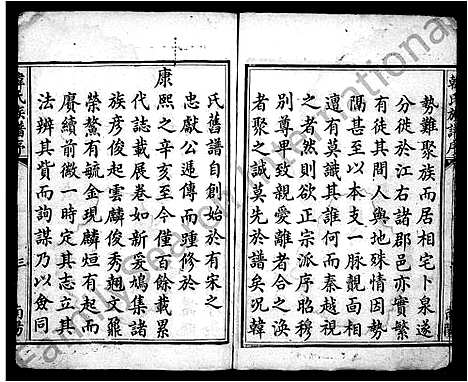 勢難聚族而居相宅卜泉遂
分徙於江右諸郡邑亦實繁
有徒其間人與地殊情因勢
隔甚至以本支一脉靚面相
遭有莫識其誰何而秦越視
之者然則欲正宗派序昭穆
別尊卑致親愛離者合之渙
者聚之誠莫先於譜矣況韓
氏舊譜自創始於有宋之
忠獻公遞傳而踵修於
康熙之辛亥至今僅百餘載累
代誌載展卷如新至鳩集諸
族彥俊起雲麟俊秀翹文鼐
榮鰲有毓金現麟垣有起而
賡續前徽一時定其志立其
法辨其貲而詢謀乃以僉同
韓氏族譜序
三
南陽
Family Search International